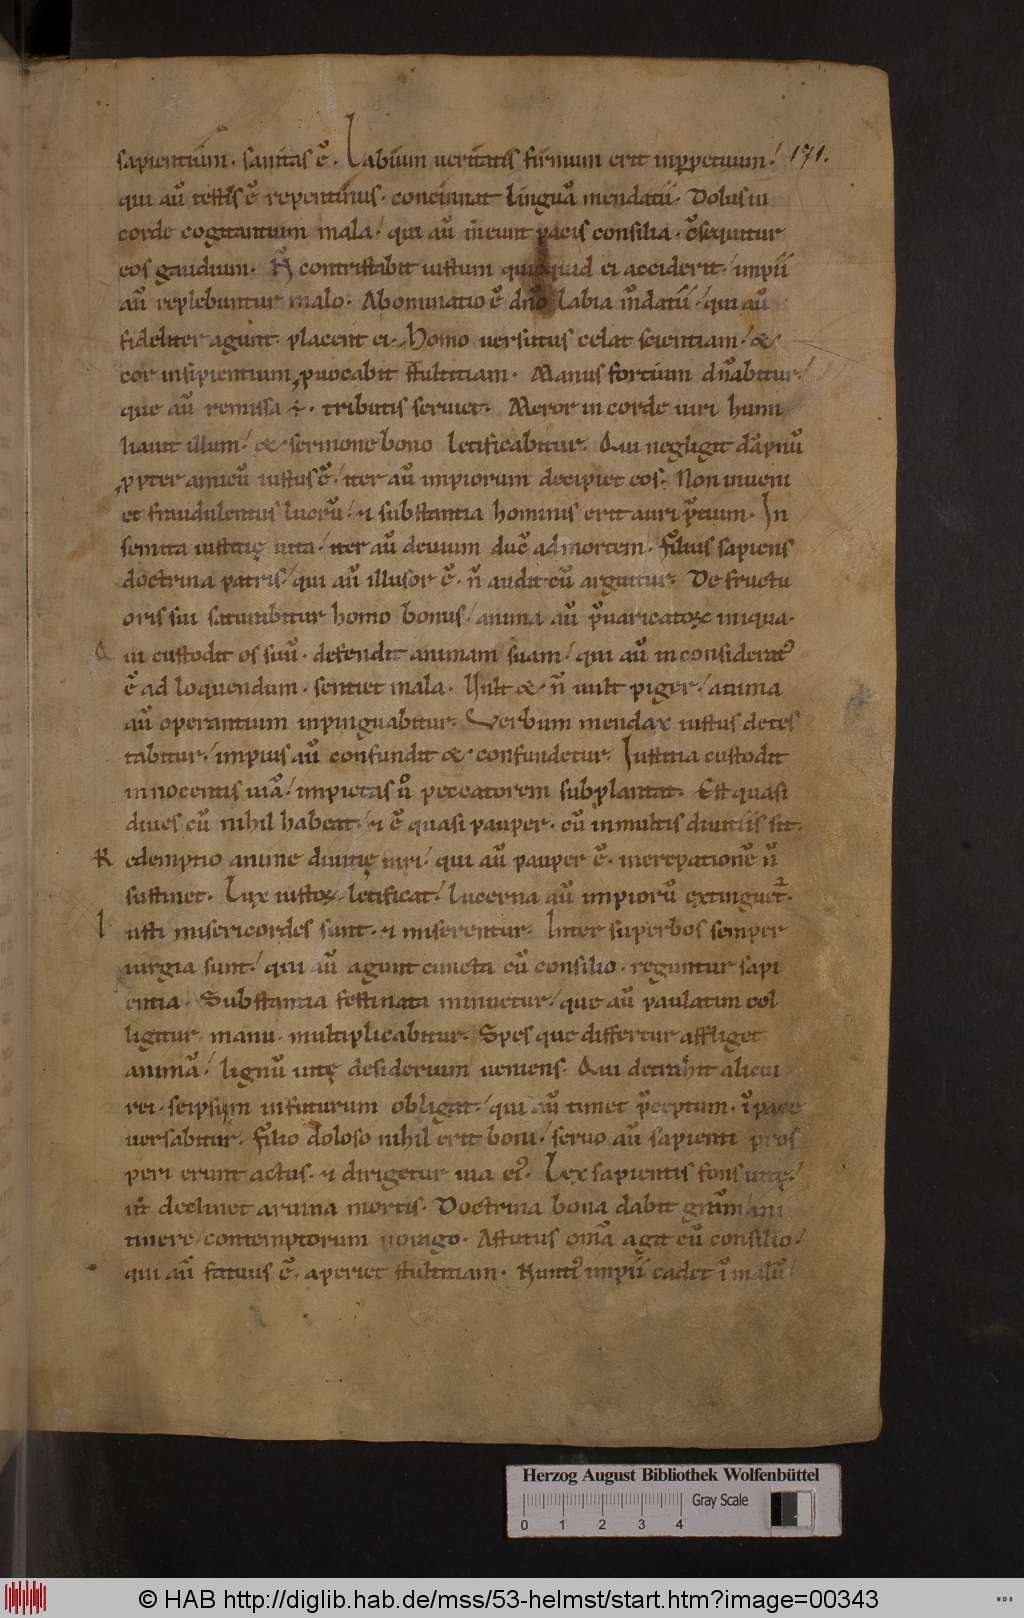 sapientium. sanitas ē. Labium veritatis firmum erit inꝑpetuum.
171.
qui aū testis ē repentinus. concinnat linguā mendatii. Dolus in
corde cogitantium mala. qui aū ineunt pacis consilia. c̄sequitur
eos gaudium. N̄ contristabit iustum quicquid ei acciderit. impii
aū replebuntur malo. Abominatio ē dn̄o labia m̄datii. qui aū
fideliter agunt placent ei. Homo versutus celat scientiam. &
cor insipientium ꝓvocabit stultitiam. Manus fortium dn̄abitur.
que aū remissa ÷. tributis serviet. Meror in corde viri humi
liavit illum. & sermone bono letificabitur. Qui negligit dāpnū
ꝓpter amicū iustus ē. iter aū impiorum decipiet eos. Non inveni
et fraudulentus lucrū. ⁊ substantia hominis erit auri p̄tium. In
semita iustitię vita. iter aū devium duc̄ ad mortem. Filius sapiens
doctrina patris. qui aū illusor ē. n̄ audit cū arguitur. De fructu
oris sui saturabitur homo bonus. anima aū p̄varicatoꝝ iniqua.
Q ui custodit os suū. defendit animam suam. qui aū inconsideratꝰ
ē ad loquendum. sentiet mala. Vult & n̄ vult piger. anima
aū operantium inpinguabitur. Verbum mendax iustus detes
tabitur. impius aū confundit & confundetur. Iustitia custodit
innocentis viā. impietas v̊ peccatorem subplantat. Est quasi
dives cū nihil habeat. ⁊ ē quasi pauper. cū in multis divitiis sit.
R edemptio anime divitię viri. qui aū pauper ē. increpationē n̄
sustinet. Lux iustoꝝ letificat. lucerna aū impiorū extinguet᷑.
I usti misericordes sunt. ⁊ miserentur. Inter superbos semper
iurgia sunt. qui aū agunt cuncta cū consilio. reguntur sapi
entia. Substantia festinata minuetur. que aū paulatim col
ligitur manu. multiplicabitur. Spes que differtur affliget
animā. lignū vitę desiderium veniens. Qui detrahit alicui
rei. seipsum in futurum obligat. qui aū timet p̄ceptum. ī pace
versabitur. Filio doloso nihil erit boni. servo aū sapienti pros
peri erunt actus. ⁊ dirigetur via eiꝰ. Lex sapientis fons vitę.
ut declinet a ruina mortis. Doctrina bona dabit gr̄am. in i
tinere contemptorum vorago. Astutus om̄a agit cū consilio.
qui aū fatuus ē. aperiet stultitiam. Nuntiꝰ impii cadet ī malū.
Herzog August Bibliothek Wolfenbüttel
Gray Scale
0 1 2 3 4
© HAB http://diglib.hab.de/mss/53-helmst/start.htm?image=00343